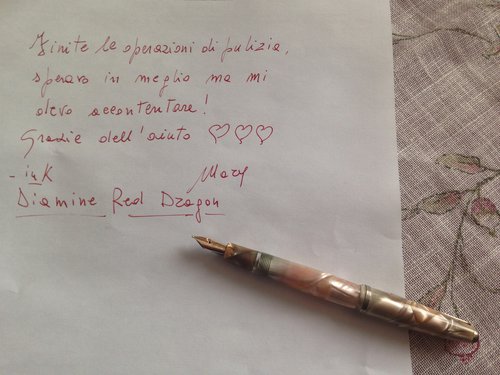 Finite le operazioni di pulizia,
speravo in meglio ma mi
devo accontentare!
Grazie dell'aiuto ♡♡♡
- ink Mary
Diamine Red Dragon